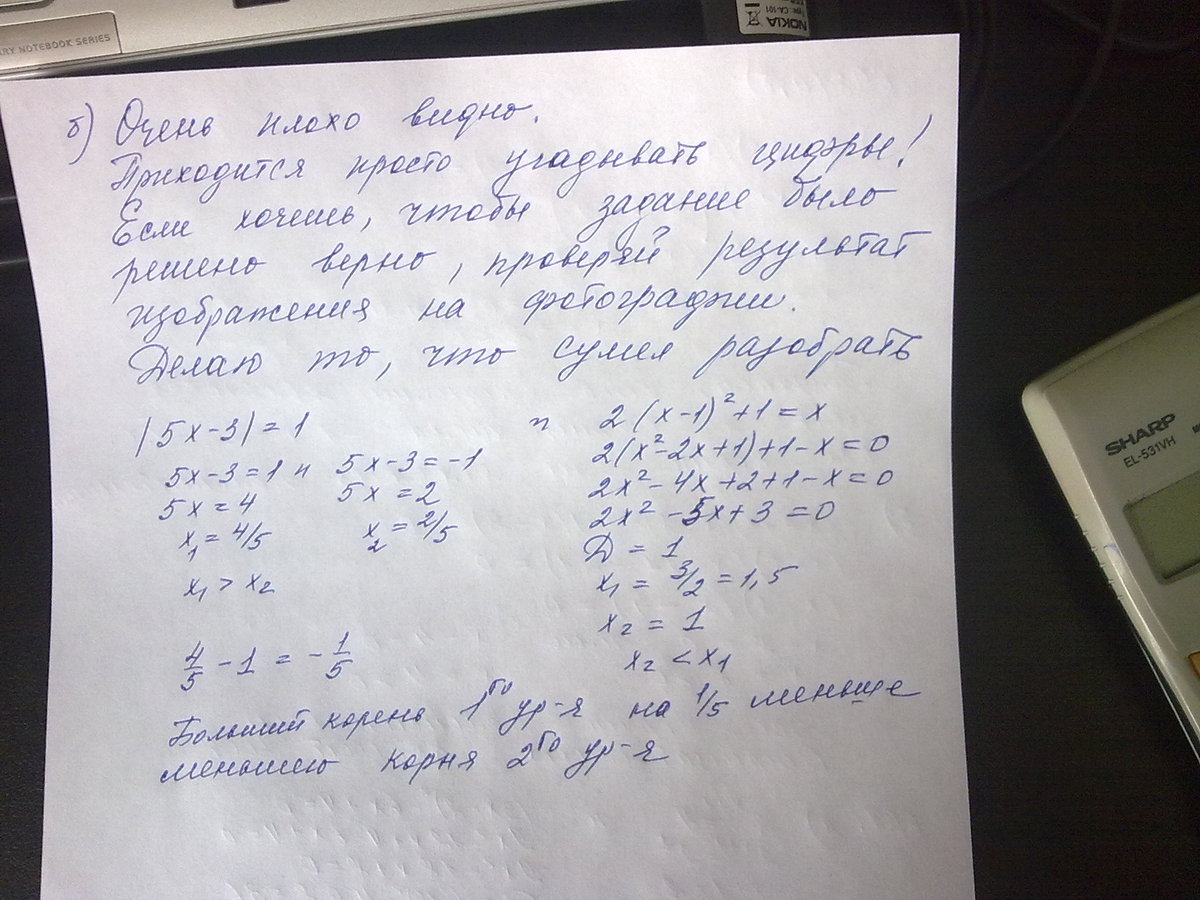 ARY NOTEBOOK SERIES
NOKIA
CA-101
б) Очень плохо видно.
Приходится просто угадывать цифры!
Если хочешь, чтобы задание было
решено верно, проверяй результат
изображения на фотографии.
Делаю то, что сумел разобрать
|5x-3|=1 и 2(x-1)²+1=x
5x-3=1 и 5x-3=-1 2(x²-2x+1)+1-x=0
5x=4 5x=2 2x²-4x+2+1-x=0
x₁=4/5 x₂=2/5 2x²-5x+3=0
Д=1
x₁>x₂ x₁=3/2=1,5
x₂=1
4/5-1=-1/5 x₂<x₁
Больший корень 1го ур-я на 1/5 меньше
меньшего корня 2го ур-я
SHARP
EL-531VH